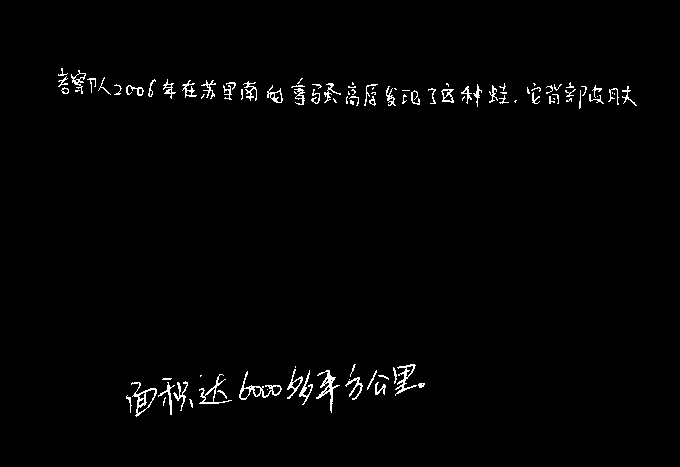 考察队2006年在苏里南的拿骚高原发现了这种蛙.它背部皮肤
面积达6000多平方公里。